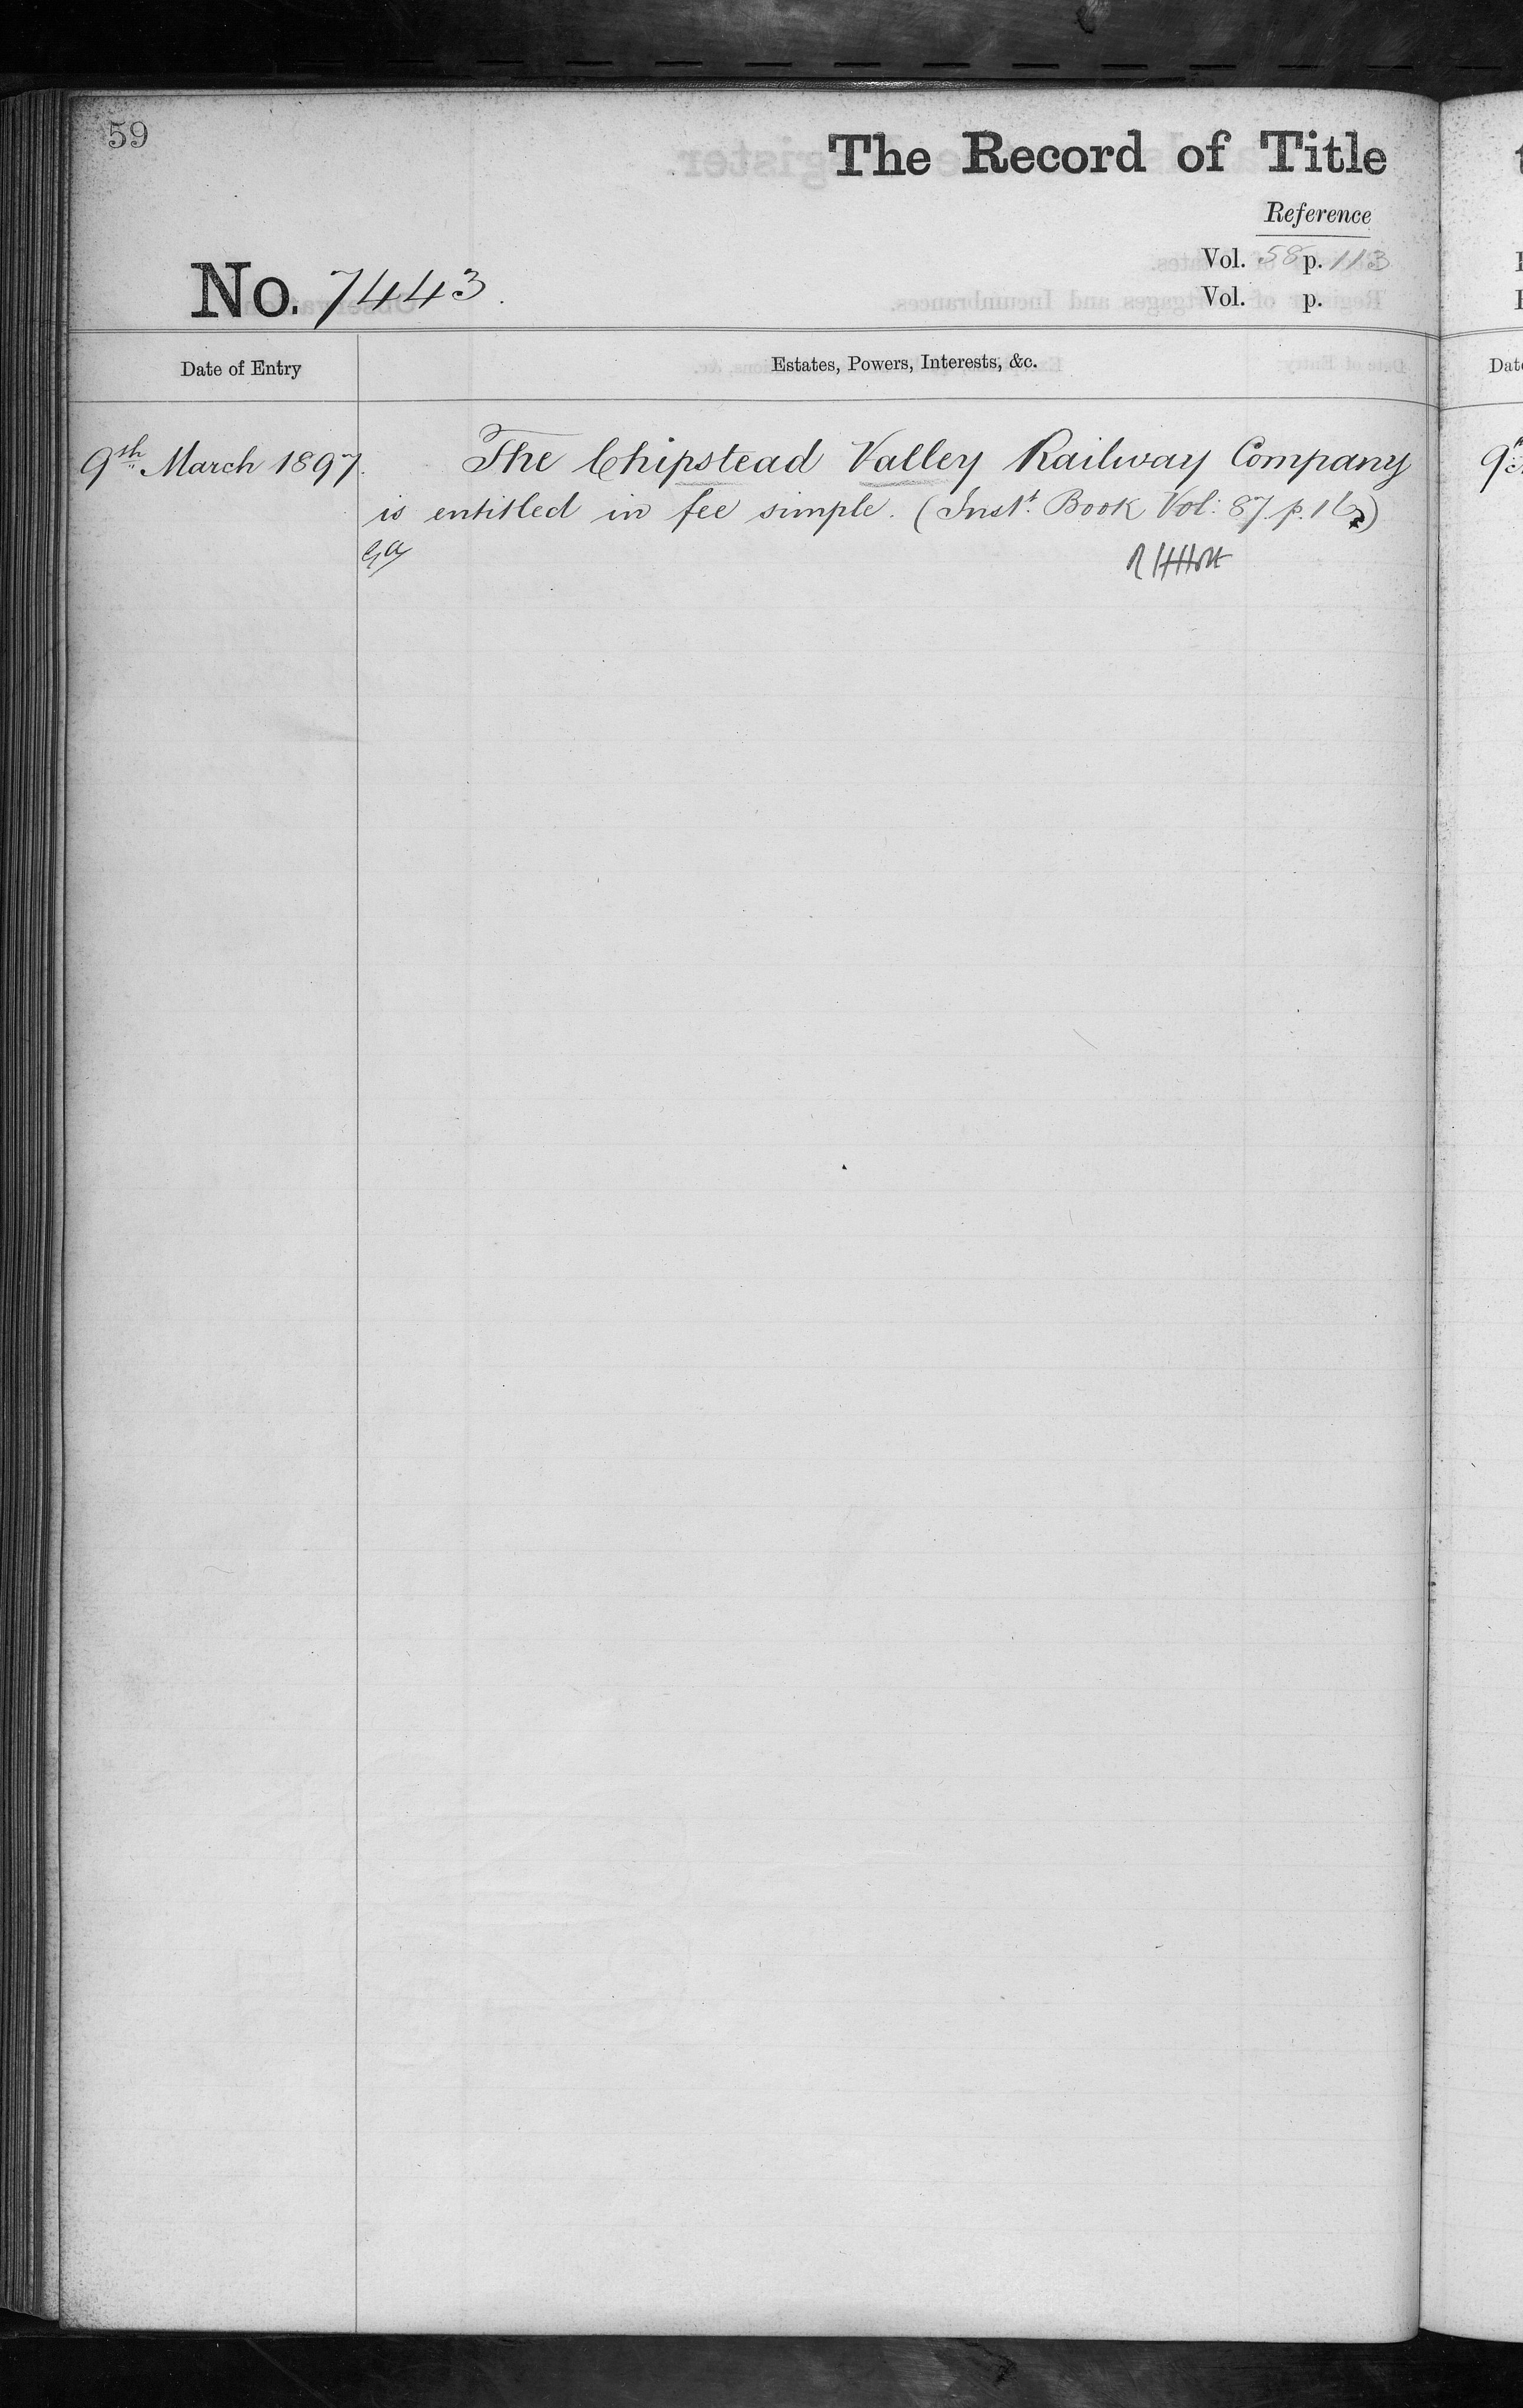 59
The Record of Title
Reference
Vol. 58 p. 113
Vol. p.
No. 7443.
Date of Entry
Estates, Powers, Interests, &c.
9th March 1897.
The Chipstead Valley Railway Company
is entitled in fee simple. (Inst. Book Vol: 87 p.